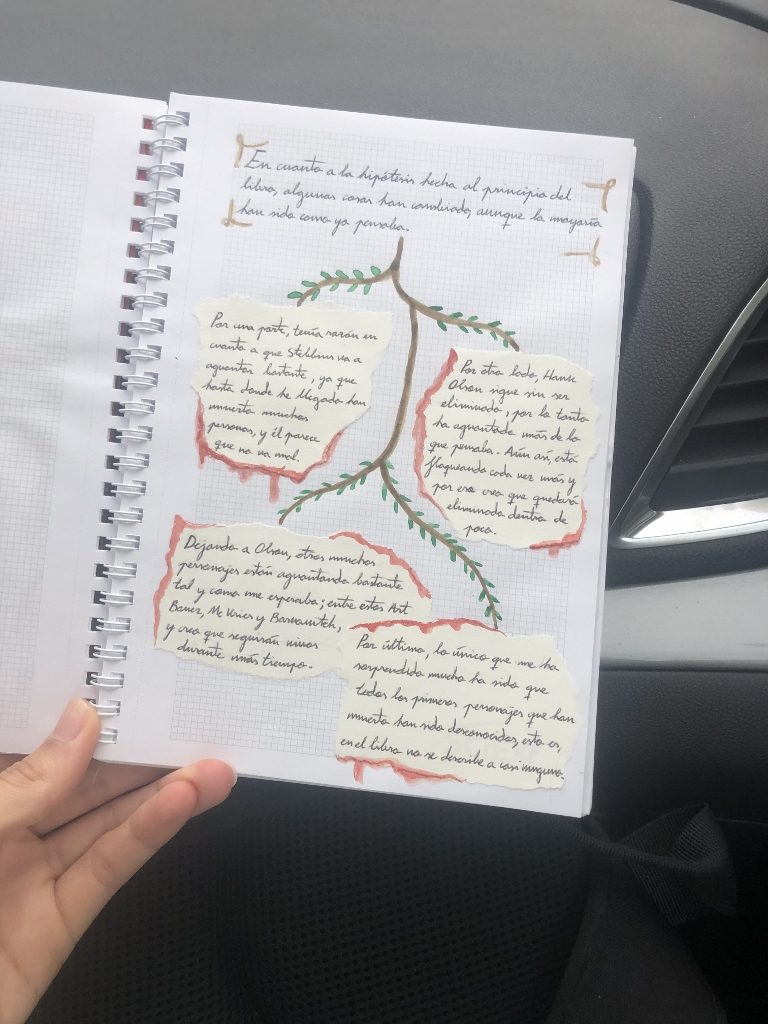 En cuanto a la hipótesis hecha al principio del
libro, algunas cosas han cambiado, aunque la mayoría
han sido como yo pensaba.
Por una parte, tenía razón en
cuanto a que Stebbins va a
aguantar bastante, ya que
hasta donde he llegado han
muerto muchas
personas, y él parece
que no va mal.
Por otro lado, Hank
Olson sigue sin ser
eliminado, por lo tanto
ha aguantado más de lo
que pensaba. Aún así, está
flaqueando cada vez más y
por eso creo que quedará
eliminado dentro de
poco.
Dejando a Olson, otros muchos
personajes están aguantando bastante
tal y como me esperaba; entre estos Art
Baker, McVries y Barkovitch,
y creo que seguirán vivos
durante más tiempo.
Por último, lo único que me ha
sorprendido mucho ha sido que
todos los primeros personajes que han
muerto han sido desconocidos, esto es,
en el libro no se describe a casi ninguno.